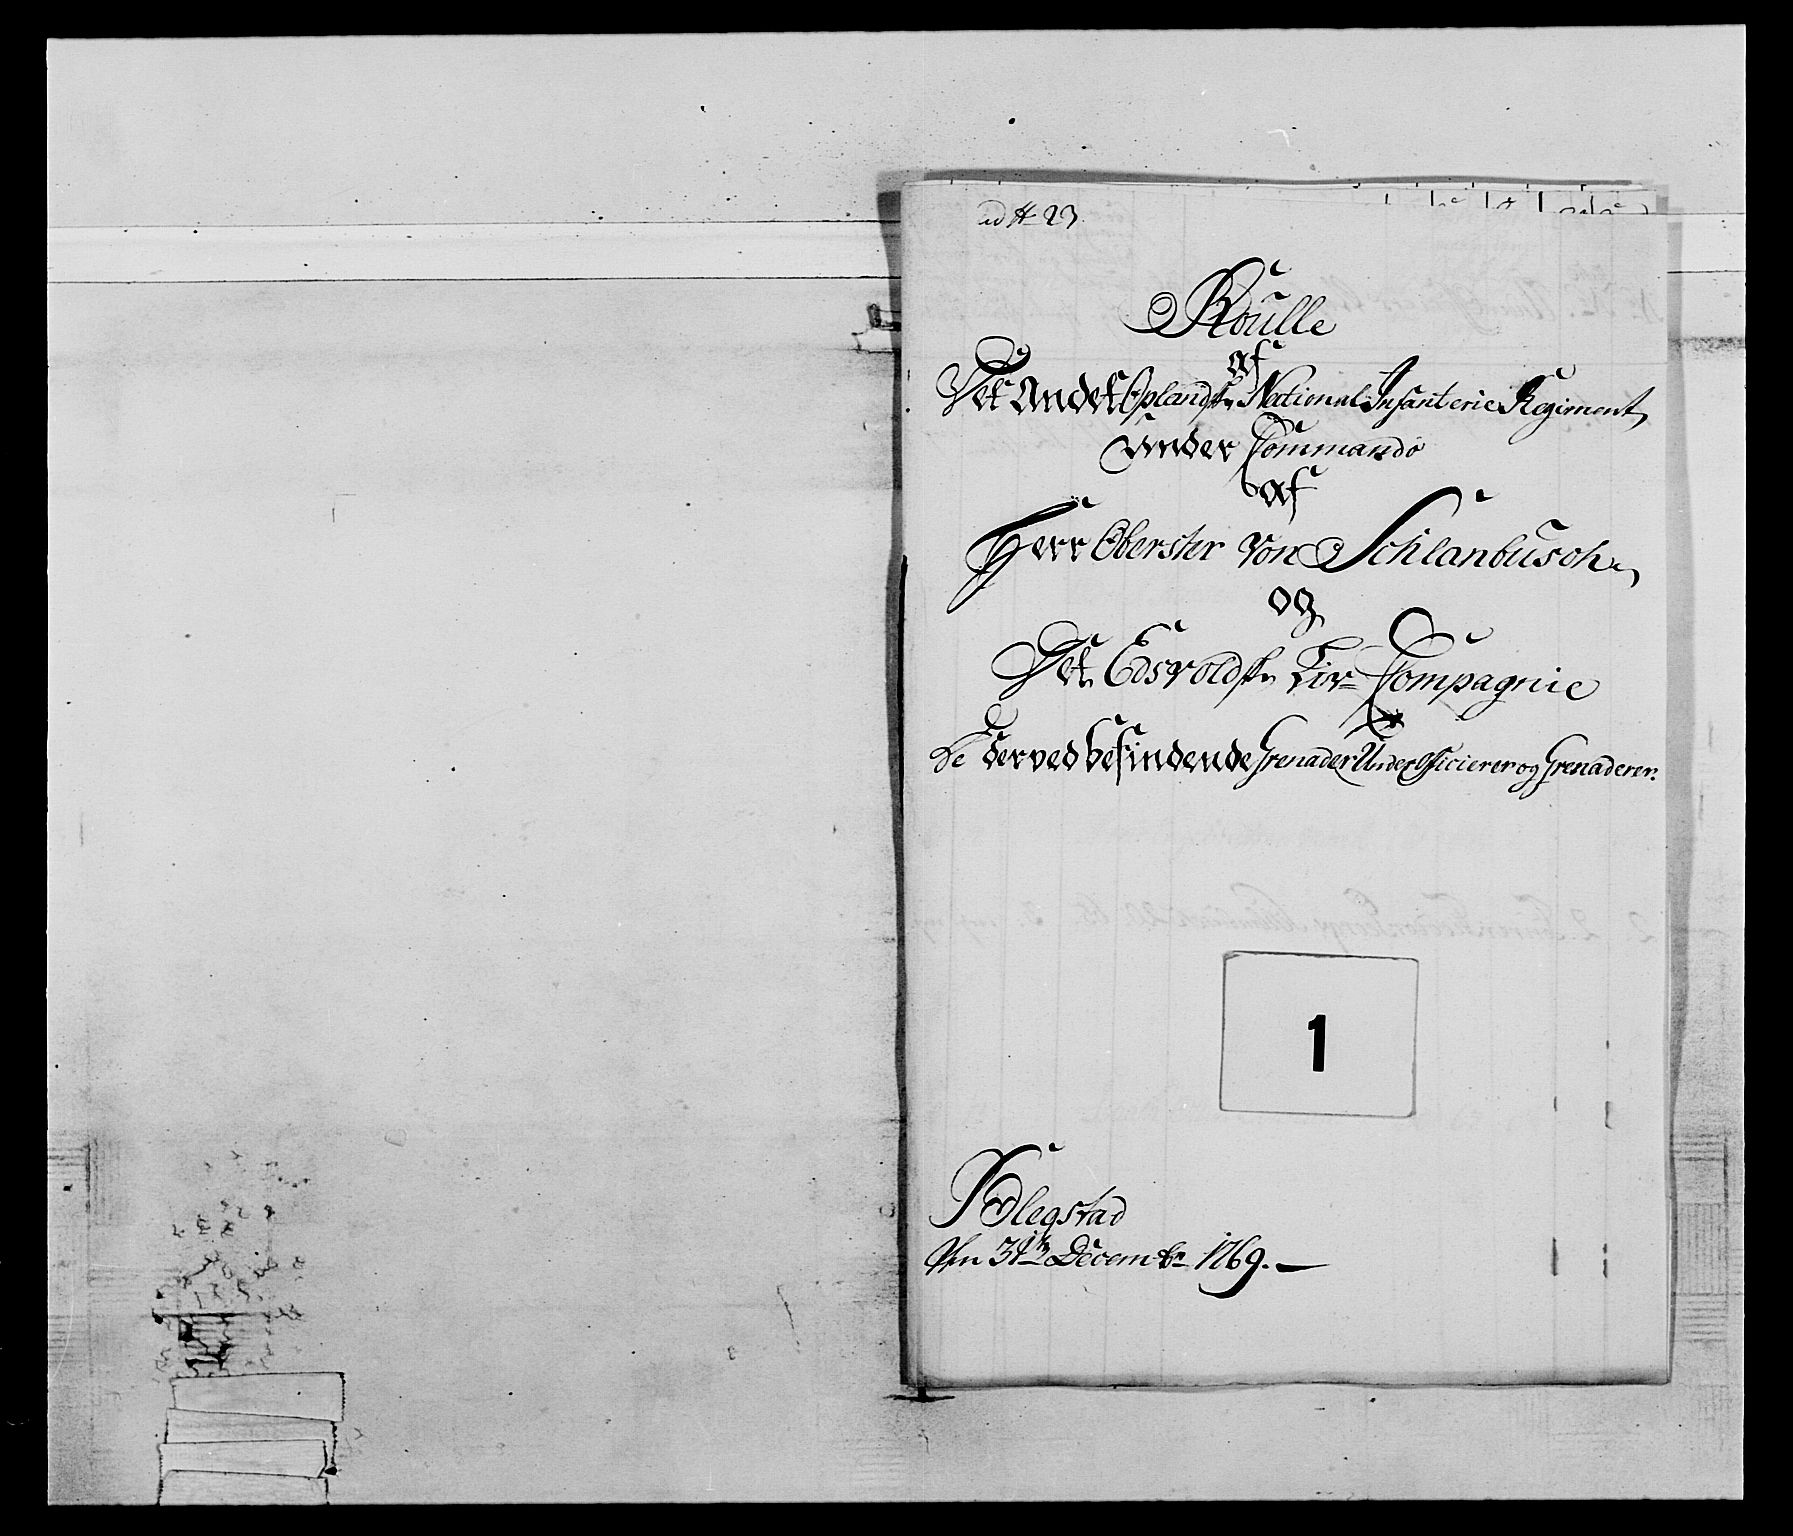 ad # 23.
Roulle
af
Det Andet Oplandske National Infanterie Regiment,
under Commando
af
Herr Oberster von Schlanbusch
og
Det Edsvoldske Liv= Compagnie
De derved befindende Grenader Under Officierer og Grenaderer.
1
Blegstad
den 31te Decembr 1769.